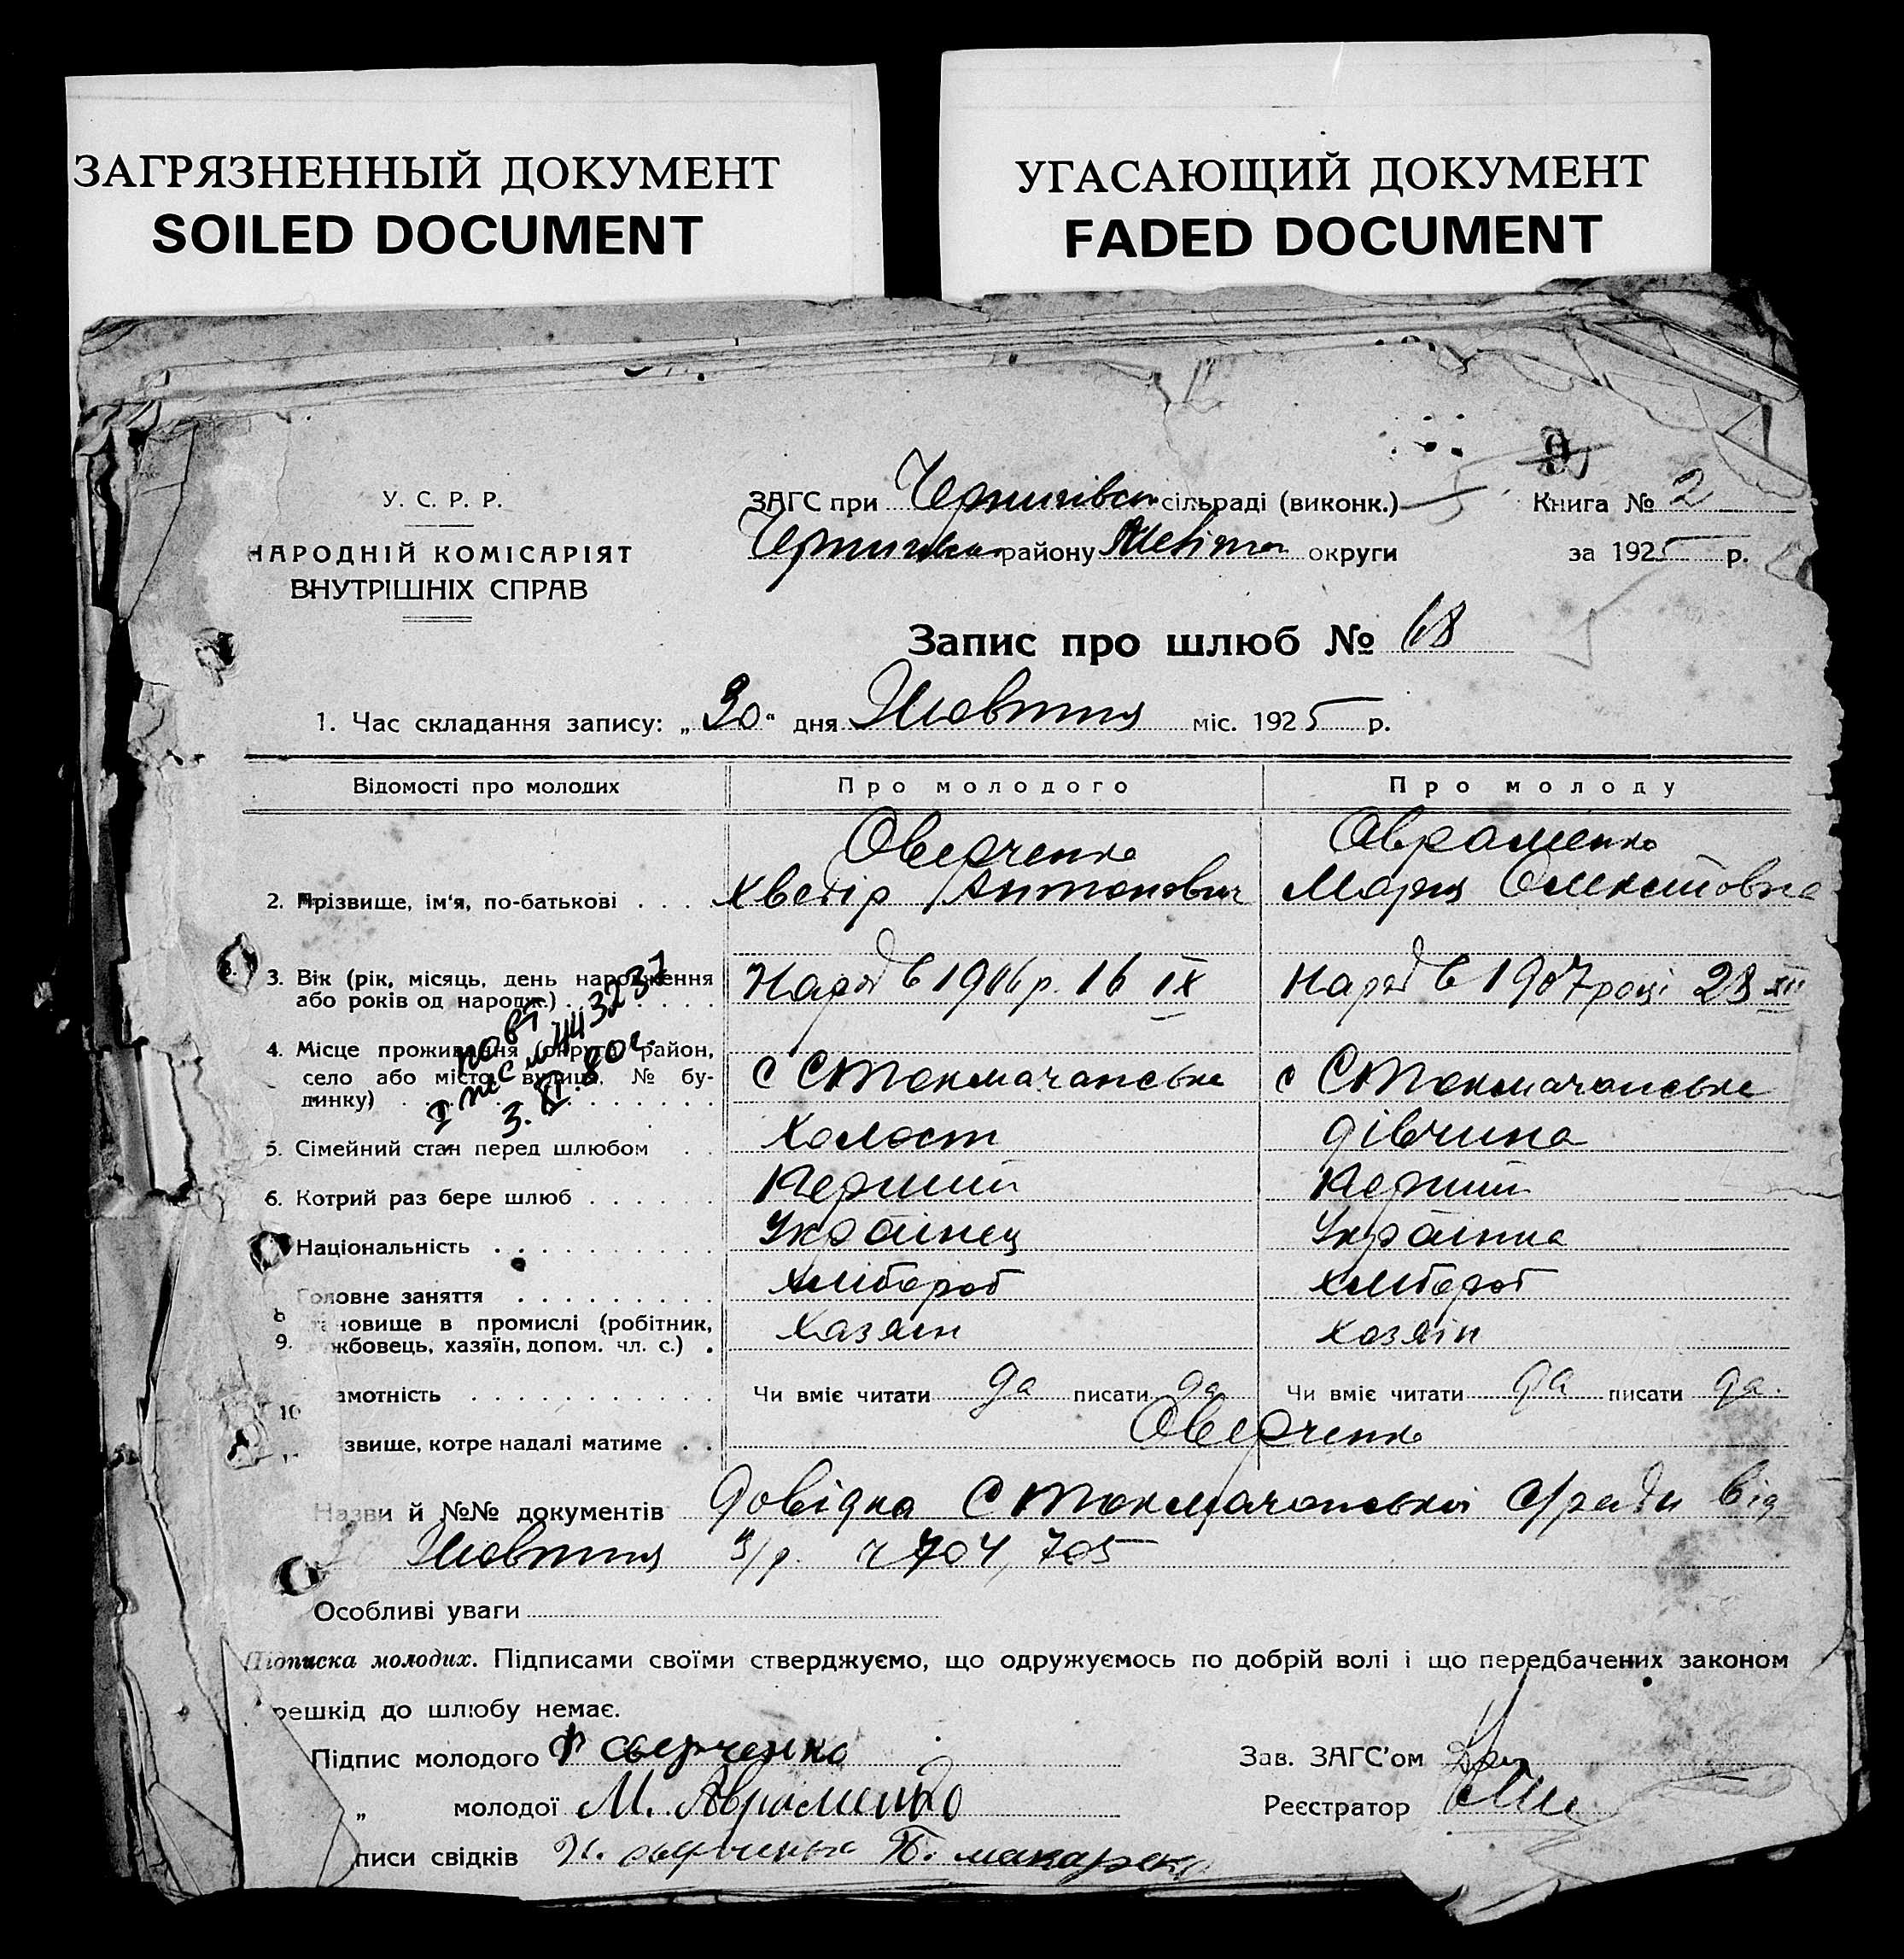 ЗАГРЯЗНЕННЫЙ ДОКУМЕНТ
SOILED DOCUMENT
УГАСАЮЩИЙ ДОКУМЕНТ
FADED DOCUMENT
У. С. Р. Р.
НАРОДНІЙ КОМІСАРІЯТ
ВНУТРІШНІХ СПРАВ
ЗАГС при Чернигівск сільраді (виконк.)
району округи
Книга № 2
за 1925 р.
Запис про шлюб № 68
1. Час складання запису: „30“ дня Жовтня міс. 1925 р.
Відомості про молодих Про молодого Про молоду
Оверченко Авраменко
2. Прізвище, ім'я, по-батькові . . . Хведір Антонович Мария
3. Вік (рік, місяць, день народження
або років од народж.) . . . . . . Народ в 1906 р. 16 IX Народ в 1907 році 28 XII
3237
3. XI. 80 г.
4. Місце проживання (округа, район,
село або місто, вулиця, № бу-
динку) . . . . . . . . с Стокмачанське с Стокмачанське
5. Сімейний стан перед шлюбом . . Холост дівчина
6. Котрий раз бере шлюб . . . . . Перший Перший
Національність . . . . . . . . . Українец Украінка
8 Головне заняття . . . . . . . . . хлібороб хлібороб
становище в промислі (робітник,
9. жбовець, хазяїн, допом. чл. с.) . Хазяін хозяін
10 амотність . . . . . . . . . . . Чи вміє читати да писати да Чи вміє читати да писати да.
звище, котре надалі матиме . . Оверченко
Назви й №№ документів Довідка Стокмачанської с/ради від
Жовтня ч 704, 705
Особливі уваги
Підписка молодих. Підписами своїми стверджуємо, що одружуємось по добрій волі і що передбачених законом
решкід до шлюбу немає.
Підпис молодого Ф Оверченко
Зав. ЗАГС'ом
„ молодої М. Авраменко
Реєстратор
писи свідків П. макаренко